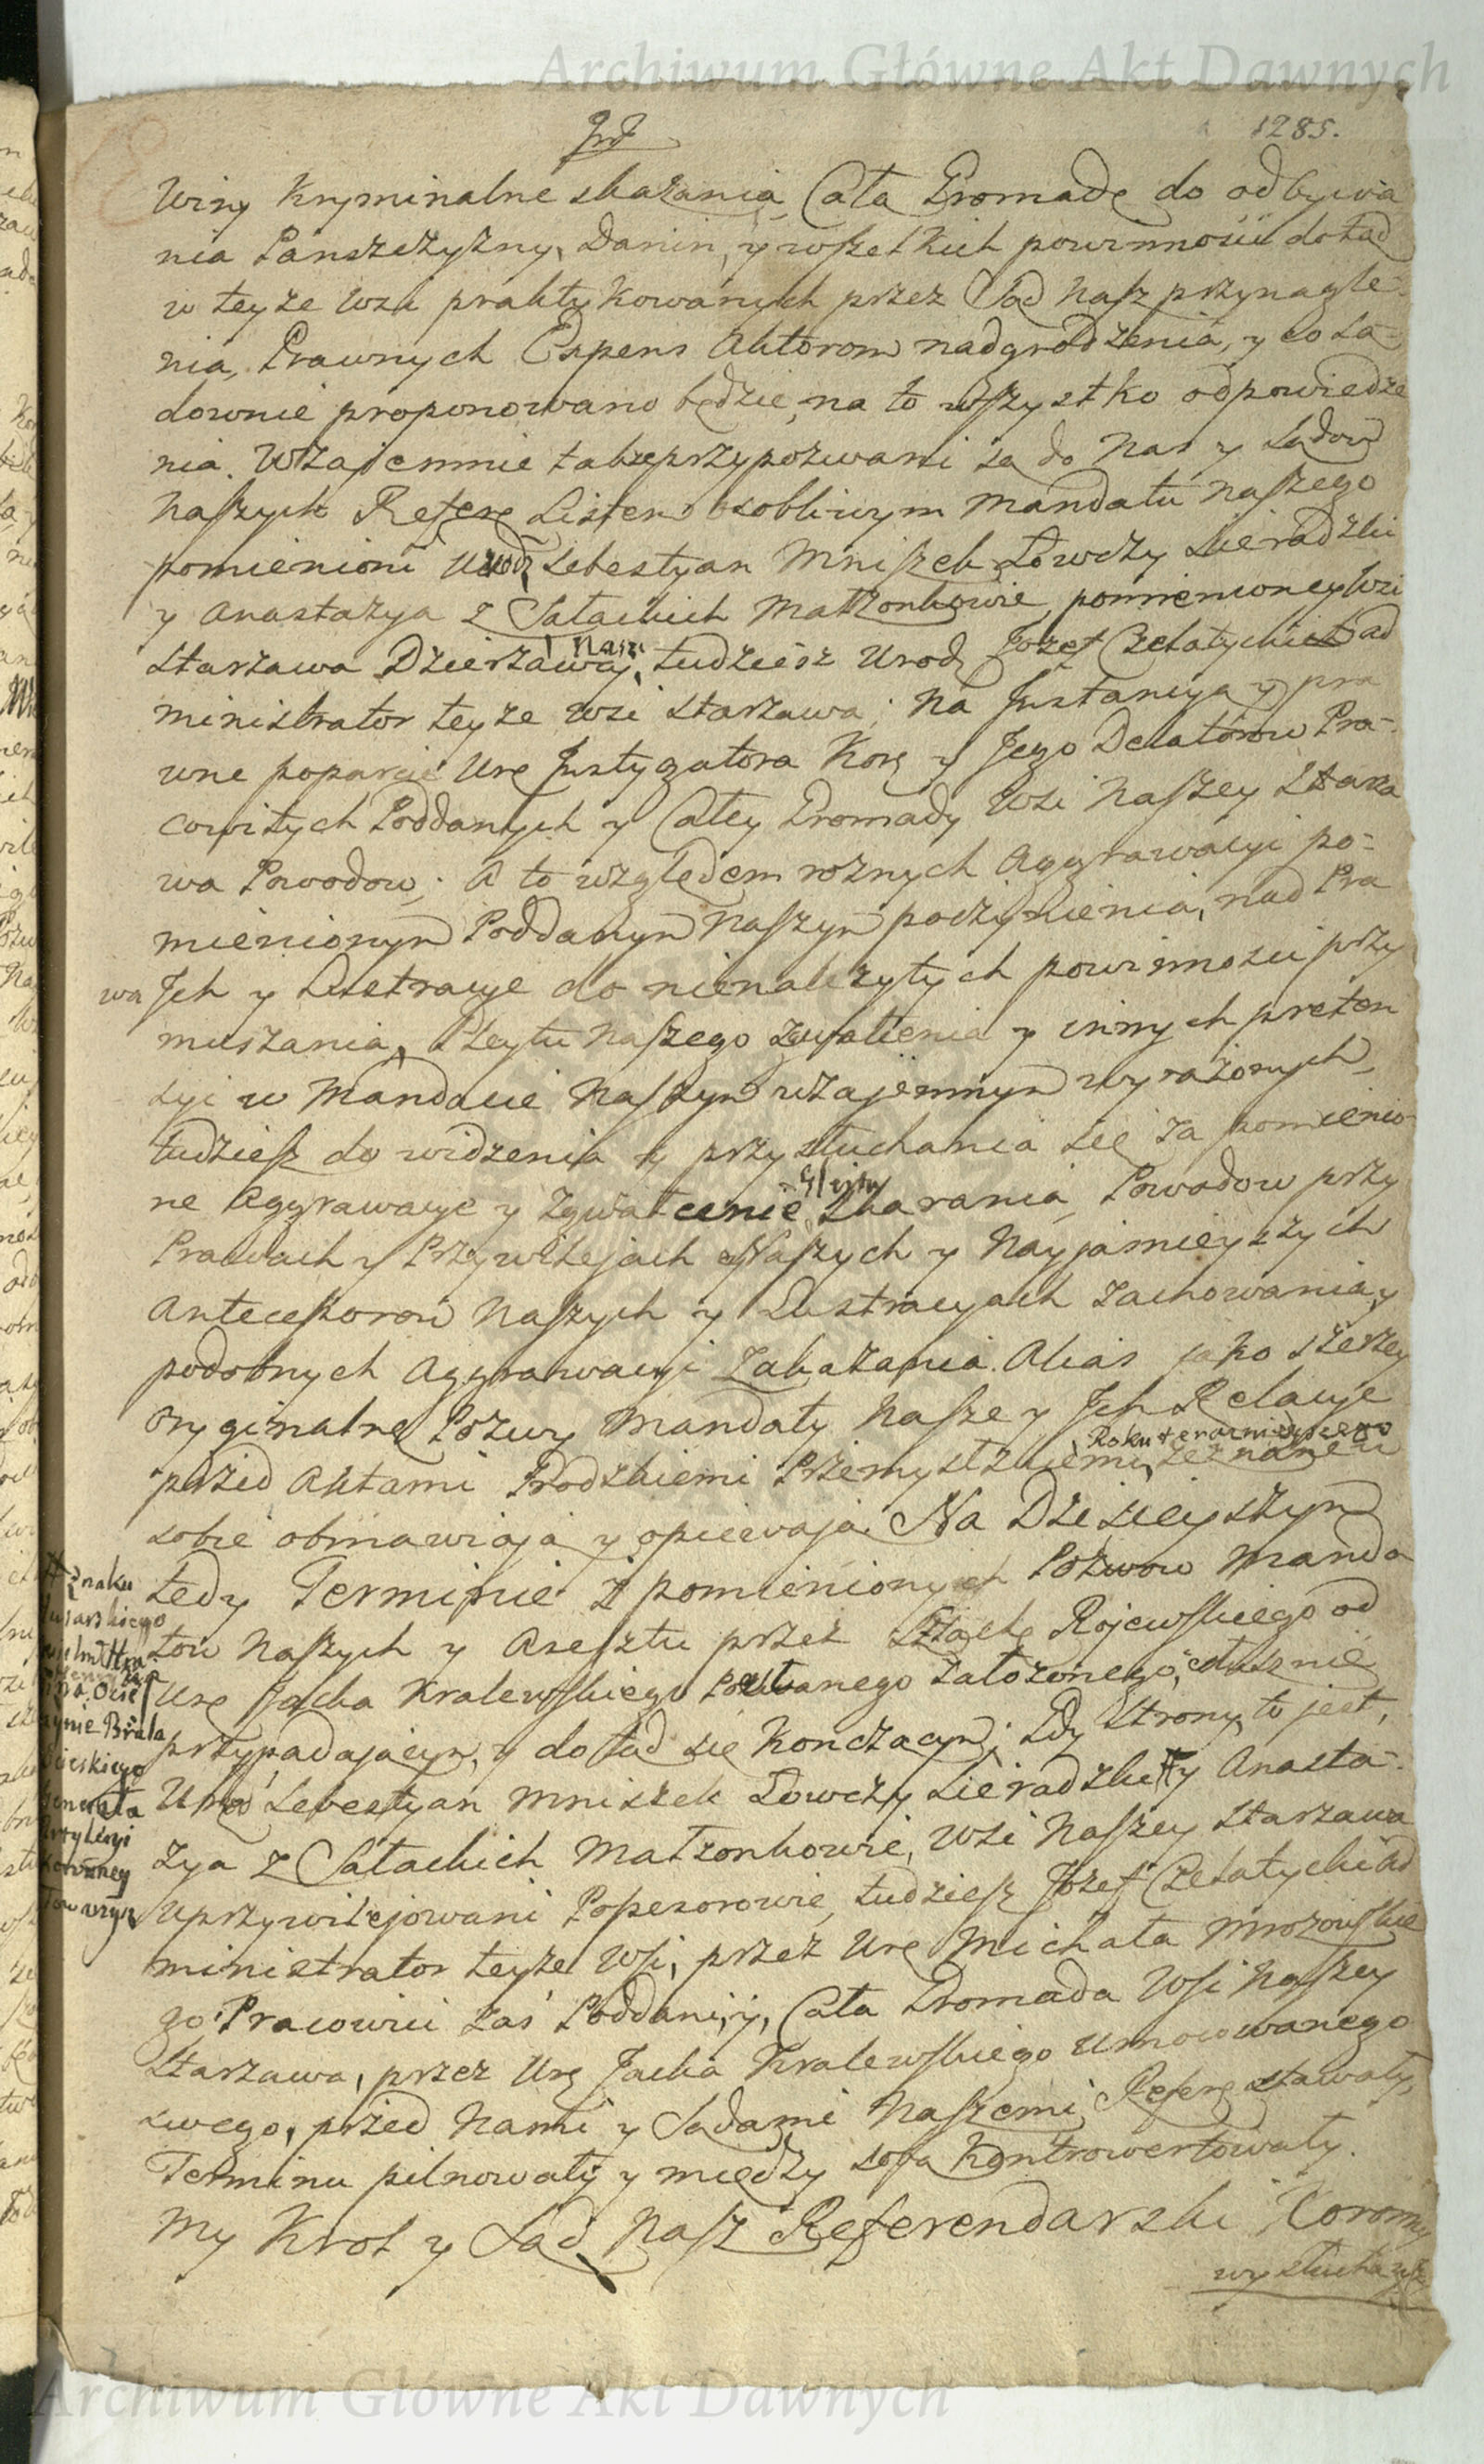 Archiwum Główne Akt Dawnych
1285.
Winy Kryminalne skazania, Cała Gromadę do odbywa
nia Panszczyzny, Danin, y wszelkich powinności dotąd
w teyze wsi praktykowanych przez Sąd Nasz przynagle-
nia, Prawnych Expens Aktorom nadgrodzenia, y co Są-
downie proponowano będzie, na to wszystko odpowiedze
nia. Wzajemnie także przypozwani są do Nas y Sądow
Naszych Referen Listem osobliwym Mandatu Naszego
pomienioni Urodz Sebestyan Mniszek Łowczy Sieradzki
y Anastazya z Sałackich Małżonkowie pomienioney Wsi
Starzawa Dzierżawcy, Nasi tudziesz Urodz Jozef Czelatycki Ad
ministrator teyze wsi Starzawa; Na Instancyą y pra
wne poparcie Urę Instygatora Korę y Jego Delatorow Pra-
cowitych Poddanych y Całey Gromady Wsi Naszey Starza
wa Powodow; A to względem roznych Aggrawacyi po-
mienionym Poddanym Naszym poczynienia, nad Pra
wa Jch y Lustracye do nienależytych powinnosci przy
muszania, Gleytu Naszego zgwałcenia y innych preten
syi w Mandacie Naszym wzajemnym wyrażonych,
tudziesz do widzenia y przysłuchania się za pomienio-
ne Aggrawacye y zgwałcenie Gleytu skarania, Powodow przy
Prawach y Przywilejach Naszych y Nayjasnieyszych
Antecessorow Naszych y Lustracyach zachowania, y
podobnych Aggrawacyi Zakazania. Alias jako szerzey
oryginalne Pozwy Mandaty Nasze y Jch Relacye
przed Aktami Grodzkiemi Przemyslskiemi, Roku teraznieyszego zeznane w
sobie obmawiaią y opiewaią. Na Dzisieyszym
tedy Terminie z pomienionych Pozwow Manda
tow Naszych y Aresztu przez Szlachę Rojewskiego od
Urę Jacka Kralewskiego Pozwanego założonego, słusznie
przypadającym, y dotąd się Kończącym; Gdy Strony, to jest,
Urod Sebestyan Mniszek Łowczy Sieradzki # y Anasta-
zya z Sałackich Małżonkowie, Wsi Naszey Starzawa
Uprzywilejowani Possesorowie, tudziesz Jozef Czelatycki Ad
ministrator teyze Wsi, przez Urę Michała Mrozowskie
go: Pracowici zaś Poddani, y, Cała Gromada Wsi Naszey
Starzawa, przez Urę Jacka Kralewskiego Umocowanego
swego, przed Nami y Sądami Naszemi Referę stawały,
Terminu pilnowały y między sobą Kontrowertowały.
My Krol y Sąd Nasz Referendarski Koronny
wysłuchawsz
# znaku
usarskiego
Generała
Artyleryi
Koronney
Towarzysz
Archiwum Główne Akt Dawnych